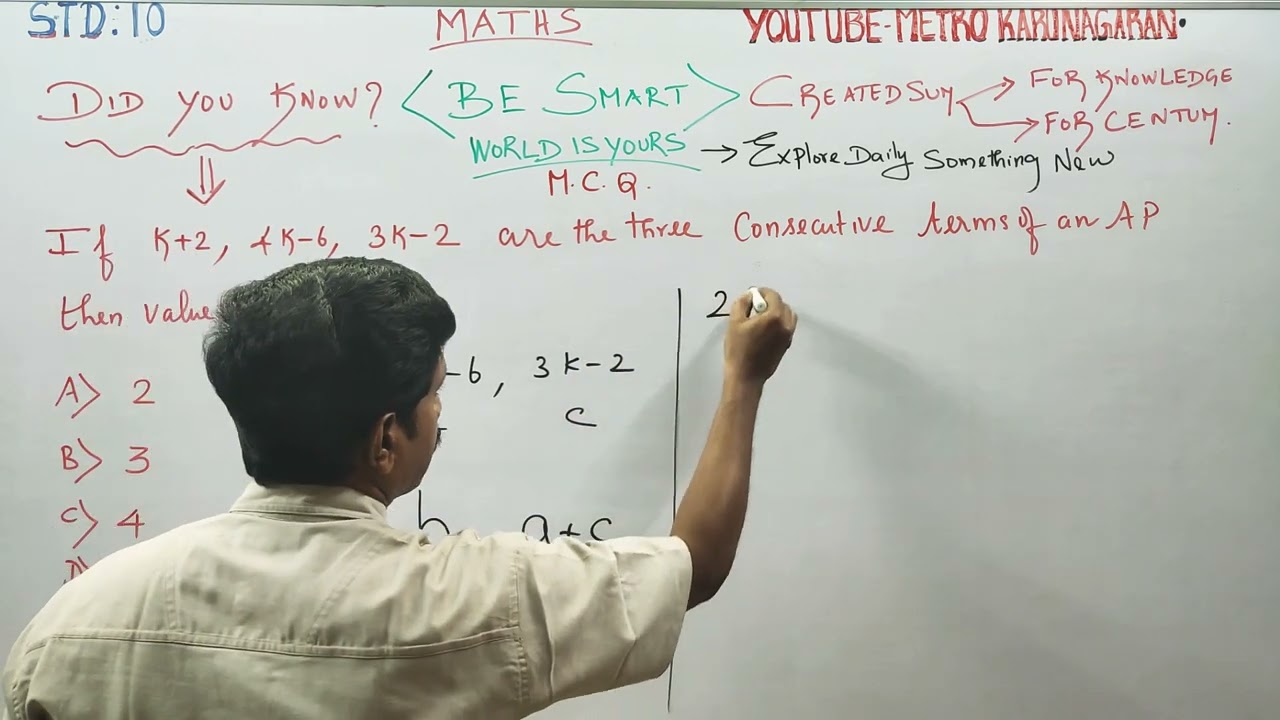 STD:10 MATHS YOUTUBE-METRO KARUNAGARAN.
DID YOU KNOW? BE SMART CREATED SUM FOR KNOWLEDGE
FOR CENTUM.
WORLD IS YOURS → Explore Daily Something New
M.C.Q.
If K+2, 4K-6, 3K-2 are the three Consecutive terms of an AP
then value
A) 2
-6, 3K-2
C
B) 3
C) 4
b a+c
2